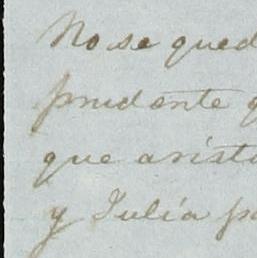 No se qued
prudente q
que asist
y Julia p